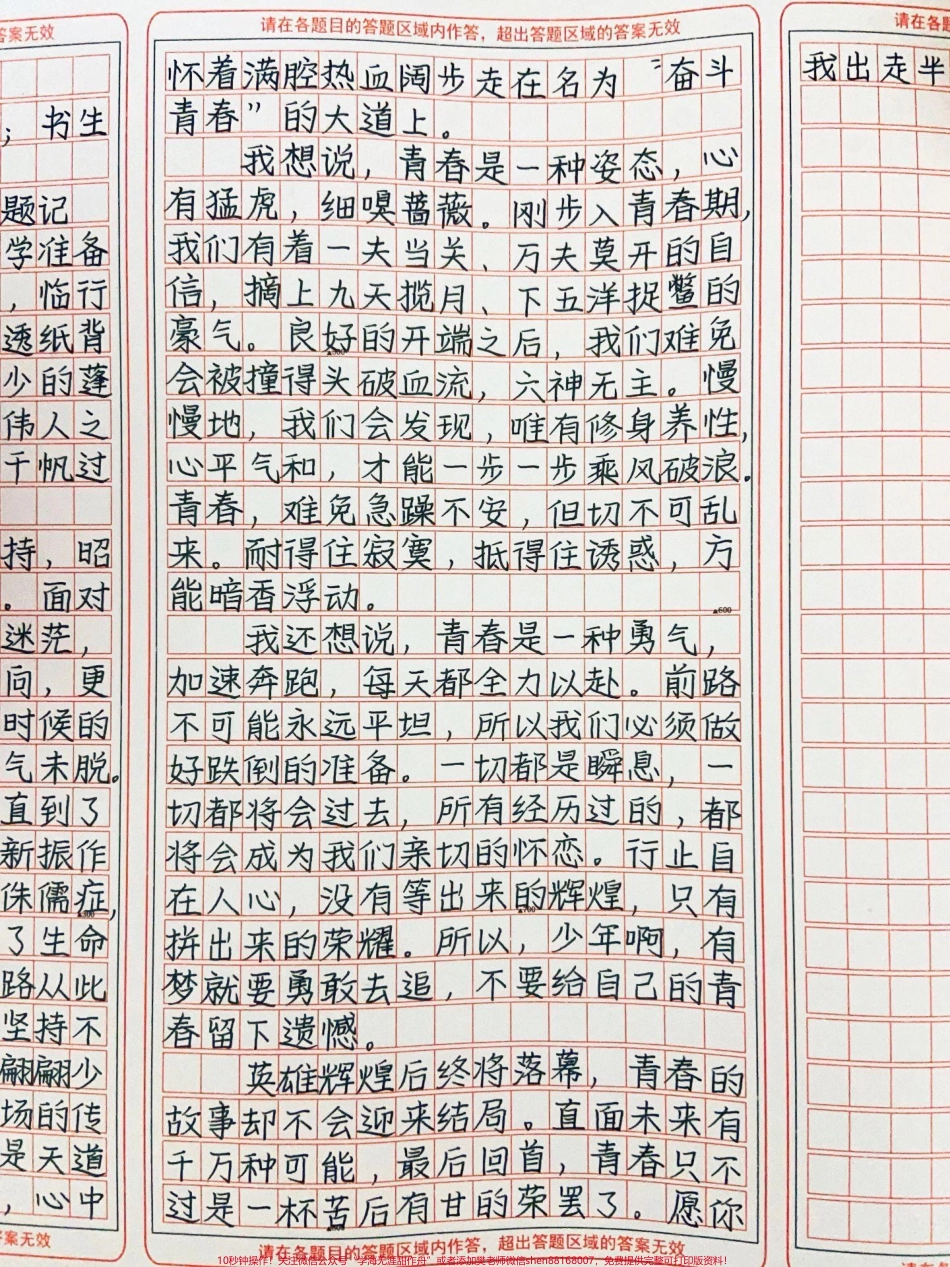 答案无效
；书生
题记
学准备
，临行
透纸背
少的蓬
伟人之
千帆过
持，昭
。面对
迷茫，
向，更
时候的
气未脱。
直到了
新振作
侏儒症，
▲300
了生命
路从此
坚持不
翩翩少
场的传
是天道
，心中
答案无效
请在各题目的答题区域内作答，超出答题区域的答案无效
怀着满腔热血阔步走在名为“奋斗
青春”的大道上。
我想说，青春是一种姿态，心
有猛虎，细嗅蔷薇。刚步入青春期，
我们有着一夫当关、万夫莫开的自
信，摘上九天揽月、下五洋捉鳖的
豪气。良好的开端之后，我们难免
会被撞得头破血流，六神无主。慢
慢地，我们会发现，唯有修身养性，
心平气和，才能一步一步乘风破浪。
青春，难免急躁不安，但切不可乱
来。耐得住寂寞，抵得住诱惑，方
能暗香浮动。
▲600
我还想说，青春是一种勇气，
加速奔跑，每天都全力以赴。前路
不可能永远平坦，所以我们必须做
好跌倒的准备。一切都是瞬息，一
切都将会过去，所有经历过的，都
将会成为我们亲切的怀恋。行止自
在人心，没有等出来的辉煌，只有
▲700
拼出来的荣耀。所以，少年啊，有
梦就要勇敢去追，不要给自己的青
春留下遗憾。
英雄辉煌后终将落幕，青春的
故事却不会迎来结局。直面未来有
千万种可能，最后回首，青春只不
过是一杯苦后有甘的荣罢了。愿你
请在各题目的答题区域内作答，超出答题区域的答案无效
请在各题
我出走半
10秒钟操作！关注微信公众号“学海无涯甜作舟”或者添加樊老师微信shen88168007，免费提供完整可打印版资料！